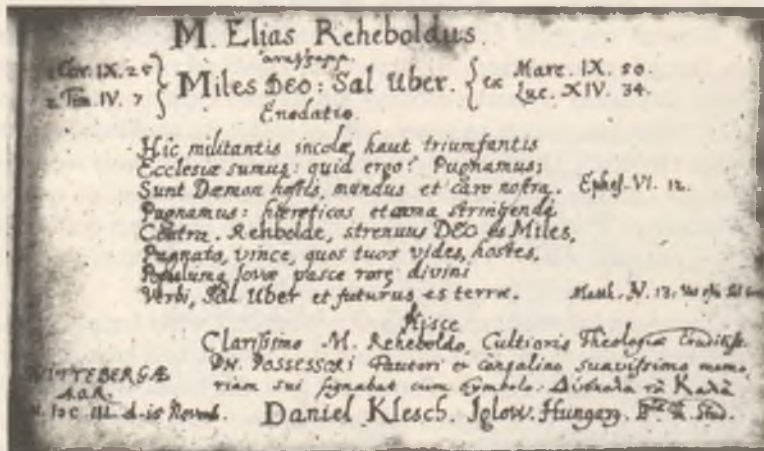 M. Elias Reheboldus.
Cor. IX. 25
Tim. IV. 7
Miles DEO: Sal Uber.
ex Marc. IX. 50.
Luc. XIV. 34.
Enodatio.
Hic militantis incolæ, haut triumfantis
Ecclesiæ sumus: quid ergo? Pugnamus;
Sunt Dæmon hostis, mundus et caro nostra. Ephes. VI. 12.
Pugnamus: hæreticos et arma stringenda
Contra. Rehbolde, strenuus DEO es Miles,
Pugnato, vince, quos tuos vides, hostes,
Populumq Jovæ pasce rore divini
Verbi, Sal Uber et futurus es terræ. Matth. V. 13.
Hisce
Clarissimo M. Reheboldo, Cultioris Theologiæ
DN. POSSESSORI Fautori et suavissimo memo
riam sui signabat cum symbolo:
WITTEBERGÆ
A.O.R.
Daniel Klesch. Iglov. Hungar.